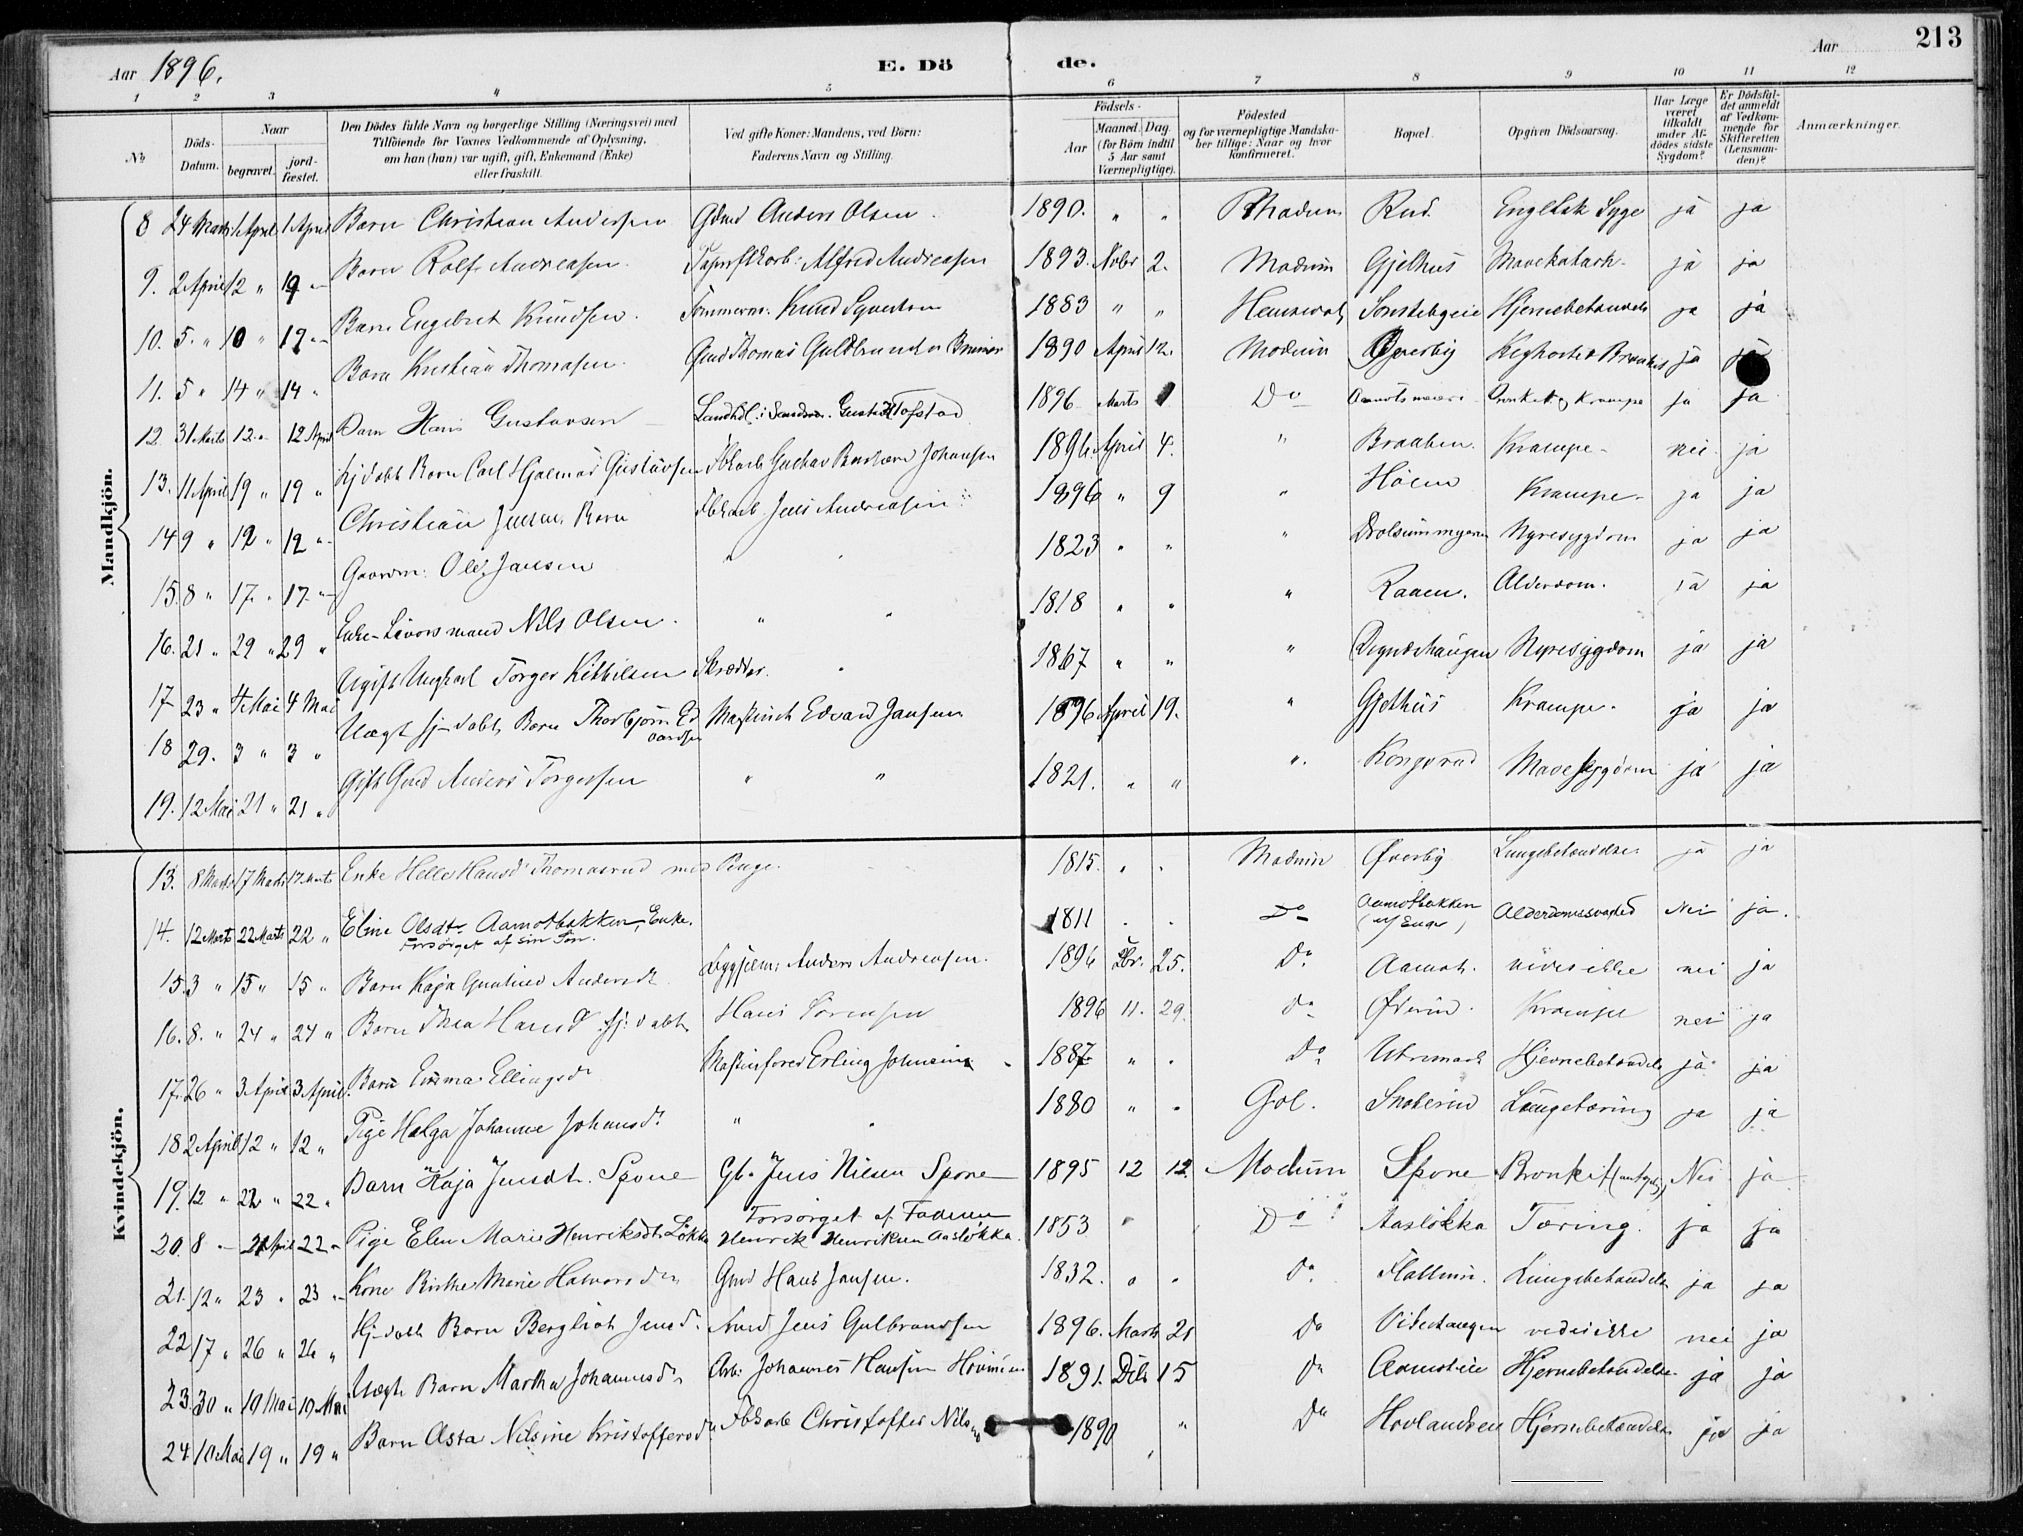 213
Aar 1896.
E. Dö de.
Aar
1 2 3 4 5 6 7 8 9 10 11 12
No
Döds-Datum.
Naar
begravet.
jordfæstet.
Den Dödes fulde Navn og borgerlige Stilling (Næringsvei) med
Tilföiende for Voxnes Vedkommende af Oplysning,
om han (hun) var ugift, gift, Enkemand (Enke)
eller fraskilt.
Ved gifte Koner: Mandens, ved Børn:
Faderens Navn og Stilling.
Födsels-
Aar
Maaned. Dag.
(for Børn indtil
5 Aar samt
Værnepligtige).
Födested
og for værnepligtige Mandska-
ber tillige: Naar og hvor
konfirmeret.
Bopæl.
Opgiven Dödsaarsag.
Har Læge
været
tilkaldt
under Af-
dödes sidste
Sygdom?
Er Dödsfal-
det anmeldt
af Vedkom-
mende for
Skifteretten
(Lensman-
den)?
Anmærkninger.
Mandkjön.
8 24 Marts 1 April 1 April Barn Christian Andersen Gdmd Anders Olsen 1890. " " Modum Rud. Engelsk Syge ja ja
9. 2 April 12 " 19 - Barn Rolf Andreasen. Alfred Andreasen 1893. Novbr 2. Modum Gjethus Mavekatarh. ja ja
10. 5. " 10 " 12 Barn Engebret Knudsen. Tømmerm. Knud 1883 " " Hemsedal Hjernebetændelse ja ja
11. 5 " 14 " 14 " Barn Kristian Thomasen. Gmd Thomas Guldbrandsen 1890 April 12. Modum Kighoste & Bronkit ja ja
12 31 Marts 12 - 12 April Barn Hans Gustavsen Landhdl. Gustav Tofstad 1896 Marts 1 Do Bronkit og Krampe ja ja
13. 11 April 19 " 19 " Hjdøbt Barn Carl Hjalmar Gustavsen Fbkarb Gustav Johansen 1896. April 4. " Braaten. Krampe. nei ja
14 9 " 12 " 12 " Christian Jensen Barn Fbkarb. Jens Andreasen 1896 " 9 " Høien Krampe. ja ja
15. 8 " 17 " 17 " Gaardm. Ole Jansen " " 1823 " " " Drolsummyren Nyresygdom ja ja
16. 21 " 29 " 29 " Nils Olsen. " " 1818 " " " Raaen. Alderdom. ja ja
17 23 " 4 Mai 4 Mai Ugift Ungkarl Torger Kittilsen Skrædder. " 1867 " " " Nyresygdom ja ja
18 29. 3 " 3 " Uægt hj-døbt Barn Thorbjørn Edvardsen Maskinist Edvard Jansen 1896 April 19. " Gjethus Krampe. ja ja
19. 12 Mai 21 " 21 " Gift Gmd Anders Torgersen " " 1821. " " " Kongsrud Mavesygdom ja ja
Kvindekjön.
13. 8 Marts 17 Marts 17 Marts Enke Helle Hansd. Thomasrud med Penge. 1815. " " Modum Øverby Lungebetændelse ja ja
14. 12 Marts 22 Marts 22 " Eline Olsdtr. Aamotbakken, Enke. 1811 " " Do Aamotbakken Alderdomssvaghed Nei ja.
Forsørget af sin Søn.
15. 3 " 15 " 15 " Barn Kaja Andersdt. Anders Andreasen. 1896 Fbr. 25. Do Aamot. vides ikke nei ja
16. 8. " 24 " 24 " Barn Thea Hansd. hj: døbt Hans Sørensen 1896 11. 29. Do Krampe nei ja
17. 26 " 3 April 3 April. Barn Emma Ellingsd. Maskinfører Erling Johnsen 1887 " " Do Hjernebetændelse ja ja
18 2 April 12 " 12 " Pige Helga Johanne Johansd. " " 1880 " " Gol. Snarum Lungetæring ja ja
19. 12 " 22 " 22 " Barn Kaja Jensdt. Spone Gb. Jens Nielsen Spone 1895 12 12. Modum Spone Bronkit Nei ja
20. 8 - 21 April 22 - Pige Elen Marie Henriksdt. Løkka Forsørget af Faderen
Henrik Henriksen Aasløkka. 1853 " Do Aasløkka Tæring. ja ja
21. 12 " 23 " 23 " Kone Birthe Marie Halvorsd. Gmd Hans Jansen. 1832. " " Do Flattum. Lungebetændelse ja ja
22 17 " 26 " 26 " Hj-døbt Barn Bergliot Jensd. Jens Gulbrandsen 1896. Marts 21 Do vides ikke nei ja
23. 30 " 10 Mai 10 Mai Uægte Barn Martha Johannesd. Arb. Johannes Hansen 1891. 15 Do Hjernebetændelse ja ja
24. 10 Mai 19 " 19 " Barn Asta Nilsine Kristoffersd. Fbkarb Christoffer Nilsen 1890 " " Do Hjernebetændelse ja ja